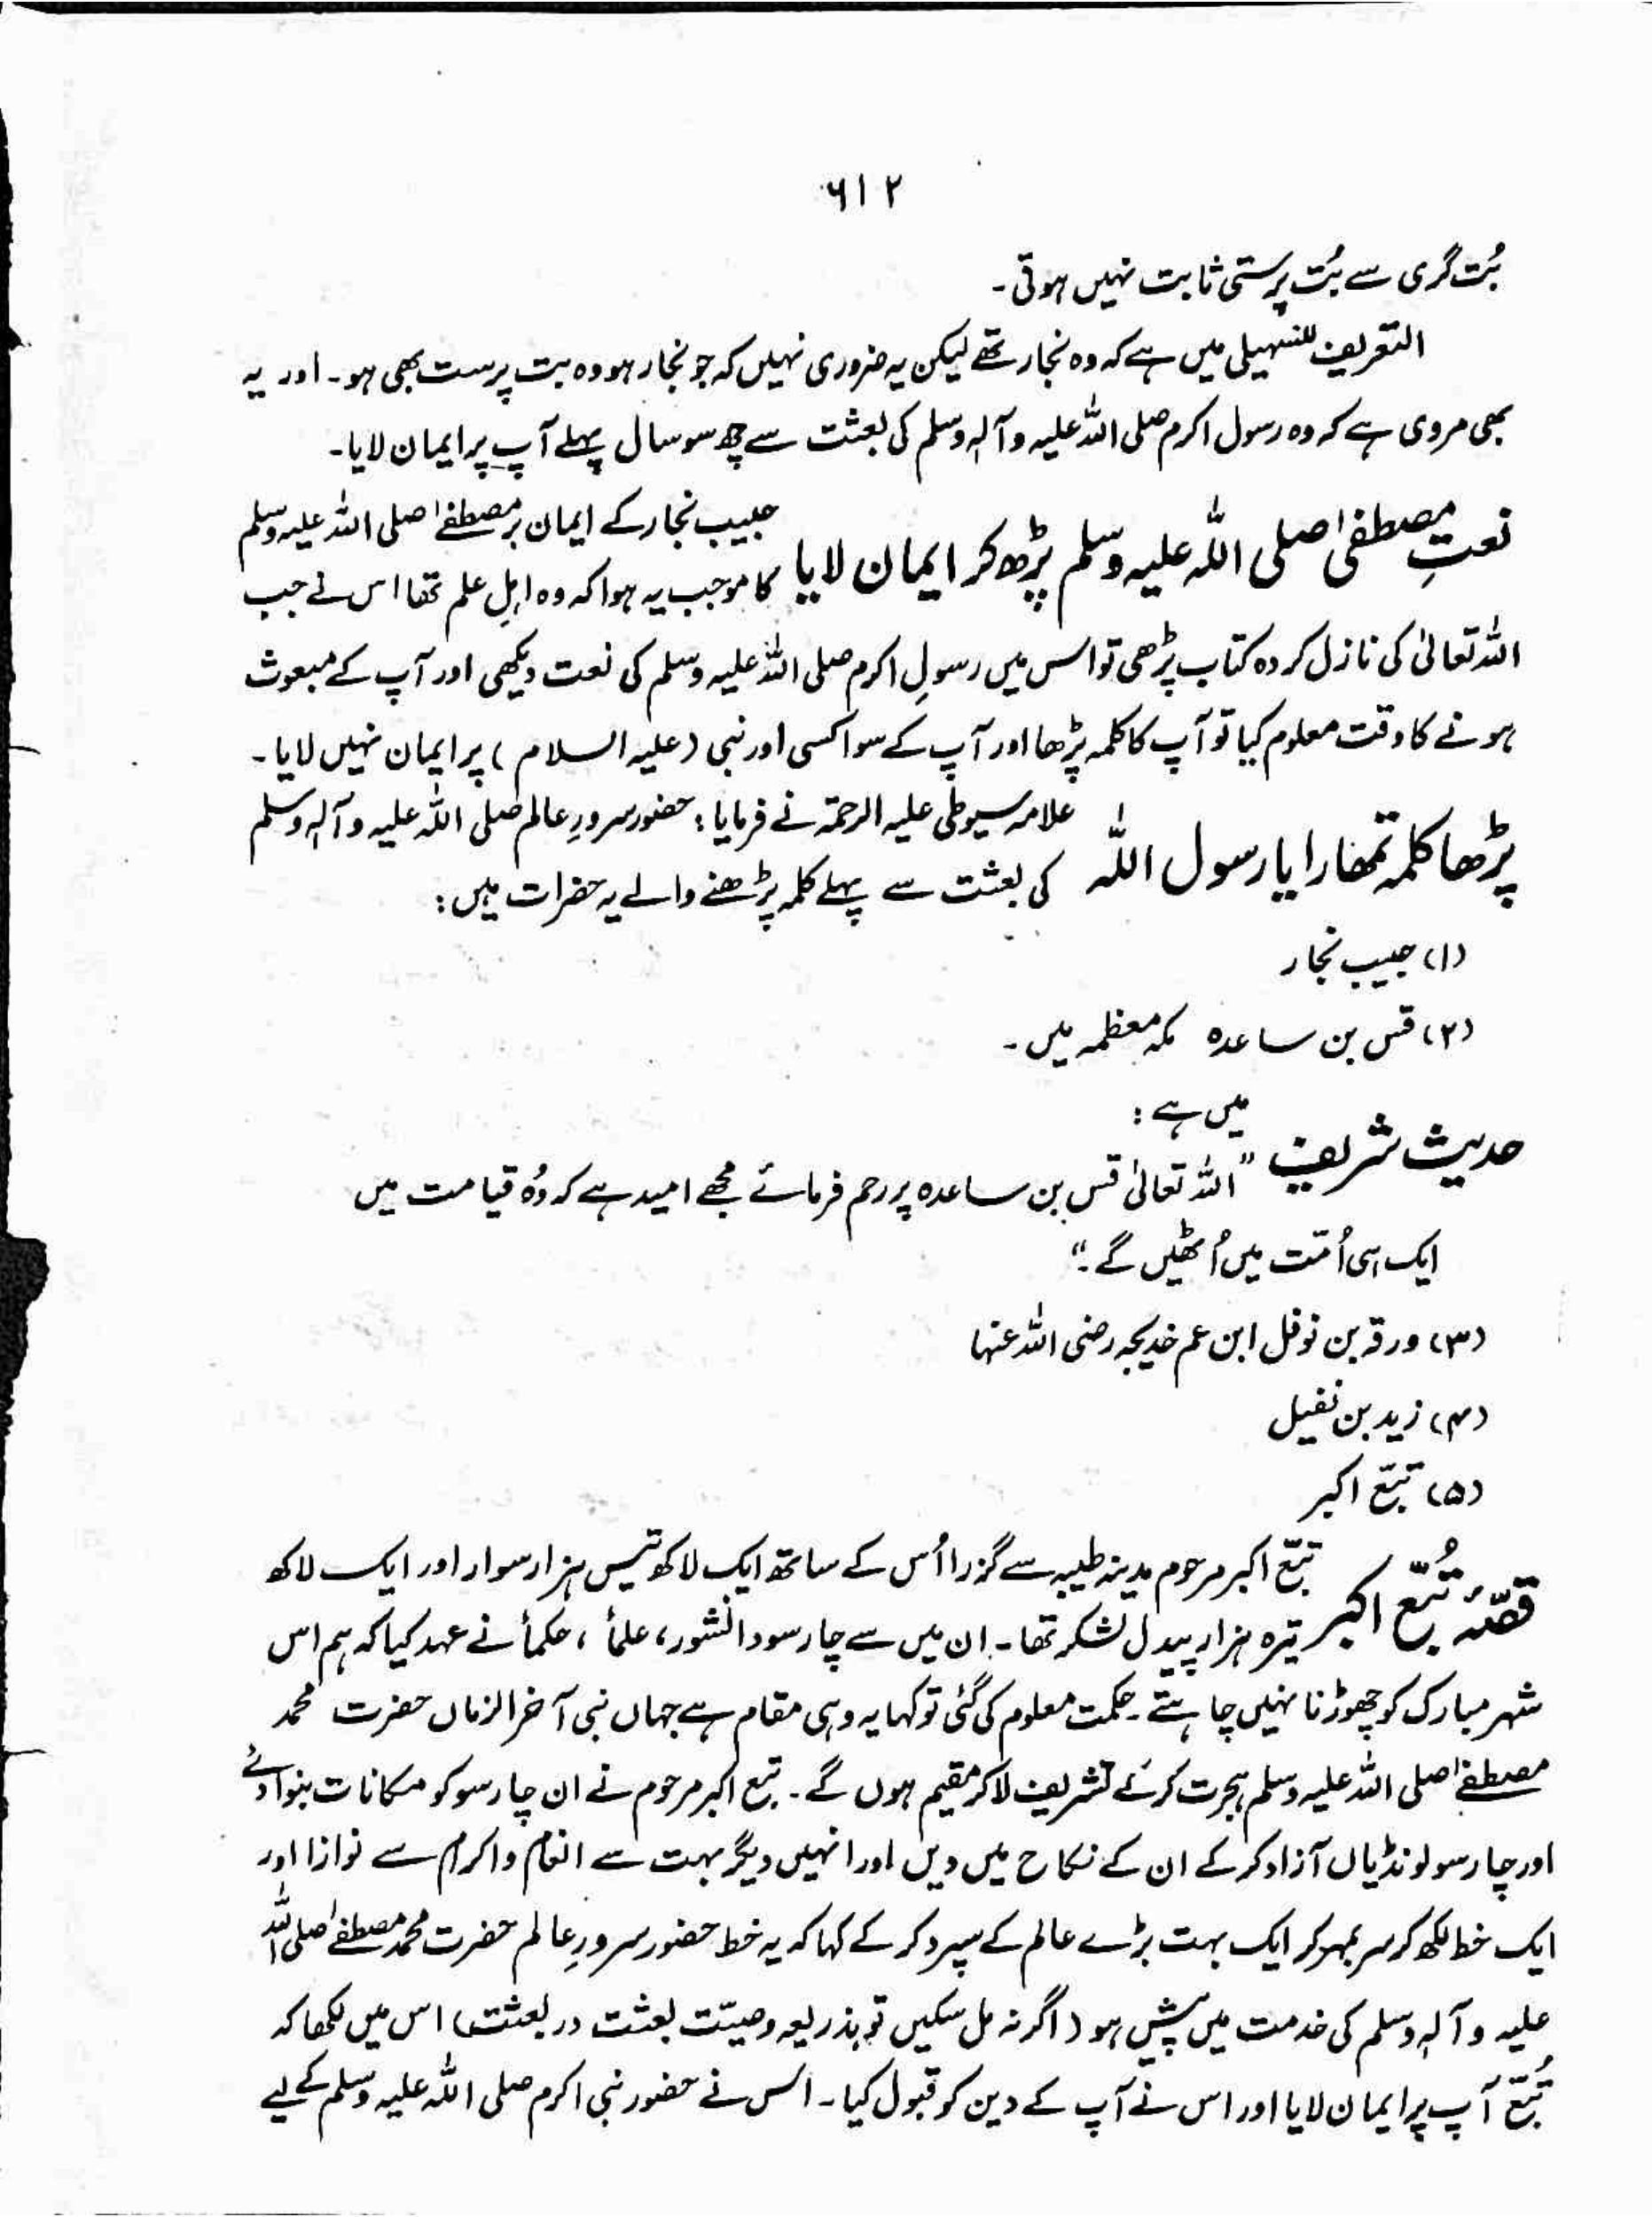 ۶۱۲
بُت گری سے بُت پرستی ثابت نہیں ہوتی۔
التعریف للسہیلی میں ہے کہ وہ نجار تھے لیکن یہ ضروری نہیں کہ جو نجار ہو وہ بت پرست بھی ہو۔ اور یہ
بھی مروی ہے کہ وہ رسول اکرم صلی اللہ علیہ وآلہٖ وسلم کی بعثت سے چھ سو سال پہلے آپ پر ایمان لایا۔
نعتِ مصطفیٰ صلی اللہ علیہ وسلم پڑھ کر ایمان لایا
حبیب نجار کے ایمان بر مصطفےٰ صلی اللہ علیہ وسلم
کا موجب یہ ہوا کہ وہ اہلِ علم تھا اس نے جب
اللہ تعالیٰ کی نازل کردہ کتاب پڑھی تو اس میں رسولِ اکرم صلی اللہ علیہ وسلم کی نعت دیکھی اور آپ کے مبعوث
ہونے کا وقت معلوم کیا تو آپ کا کلمہ پڑھا اور آپ کے سوا کسی اور نبی (علیہ السلام) پر ایمان نہیں لایا۔
پڑھا کلمہ تمھارا یا رسول اللہ
علامہ سیوطی علیہ الرحمۃ نے فرمایا: حضور سرورِ عالم صلی اللہ علیہ وآلہٖ وسلم
کی بعثت سے پہلے کلمہ پڑھنے والے یہ حضرات ہیں:
(۱) حبیب نجار
(۲) قس بن ساعدہ مکہ معظمہ میں۔
حدیث شریف
میں ہے:
"اللہ تعالیٰ قس بن ساعدہ پر رحم فرمائے مجھے امید ہے کہ وُہ قیامت میں
ایک ہی اُمّت میں اُٹھیں گے۔"
(۳) ورقہ بن نوفل ابن عم خدیجہ رضی اللہ عنہا
(۴) زید بن نفیل
(۵) تبّع اکبر
قصّۂ تُبّع اکبر
تبّع اکبر مرحوم مدینہ طیبہ سے گزرا اُس کے ساتھ ایک لاکھ تیس ہزار سوار اور ایک لاکھ
تیرہ ہزار پیدل لشکر تھا۔ ان میں سے چار سو دانشور، علمأ، حکمأ نے عہد کیا کہ ہم اس
شہر مبارک کو چھوڑنا نہیں چاہتے۔ حکمت معلوم کی گئی تو کہا یہ وہی مقام ہے جہاں نبی آخر الزماں حضرت محمد
مصطفےٰ صلی اللہ علیہ وسلم ہجرت کرکے تشریف لا کر مقیم ہوں گے۔ تبع اکبر مرحوم نے ان چار سو کو مکانات بنوا دئے
اور چار سو لونڈیاں آزاد کر کے ان کے نکاح میں دیں اور انہیں دیگر بہت سے انعام واکرام سے نوازا اور
ایک خط لکھ کر سر بمہر کر ایک بہت بڑے عالم کے سپرد کر کے کہا کہ یہ خط حضور سرورِ عالم حضرت محمد مصطفےٰ صلی اللہ
علیہ وآلہٖ وسلم کی خدمت میں پیش ہو (اگر نہ مل سکیں تو بذریعہ وصیّت بعثت در بعثت) اس میں لکھا کہ
تُبّع آپ پر ایمان لایا اور اس نے آپ کے دین کو قبول کیا۔ اس نے حضور نبی اکرم صلی اللہ علیہ وسلم کے لیے